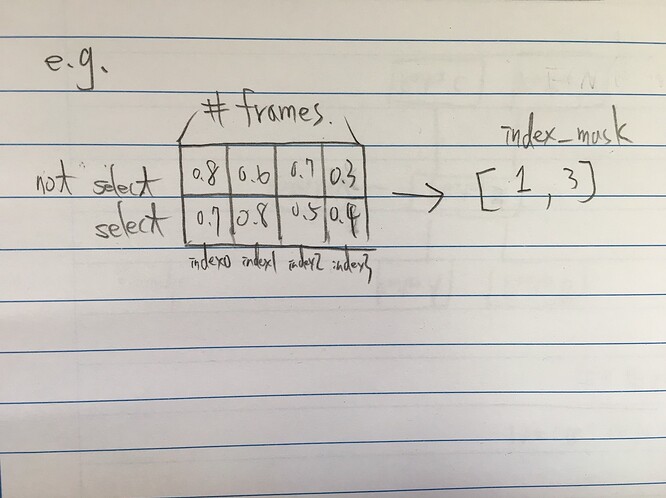 e.g.
# frames.
index_mask
not select 0.8 0.6 0.7 0.3 → [1, 3]
select 0.7 0.8 0.5 0.4
index0 index1 index2 index3